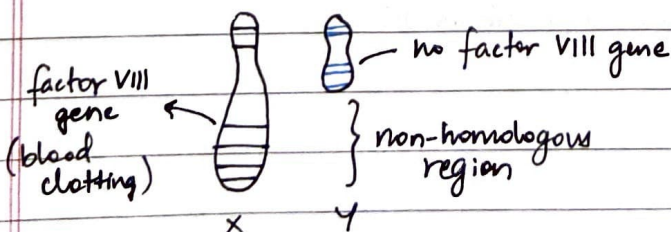 factor VIII
gene
(blood
clotting)
no factor VIII gene
non-homologous
region
X
Y